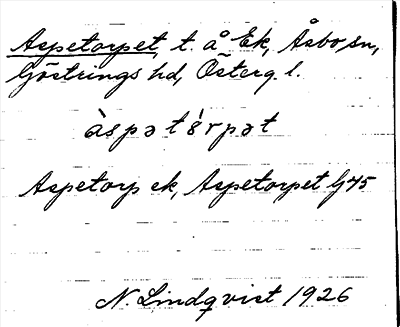 Aspetorpet, t. å Ek, Åsbo sn,
Göstrings hd, Österg. l.
àspətórpət
Aspetorp ek, Aspetorpet Gj45
N. Lindqvist 1926